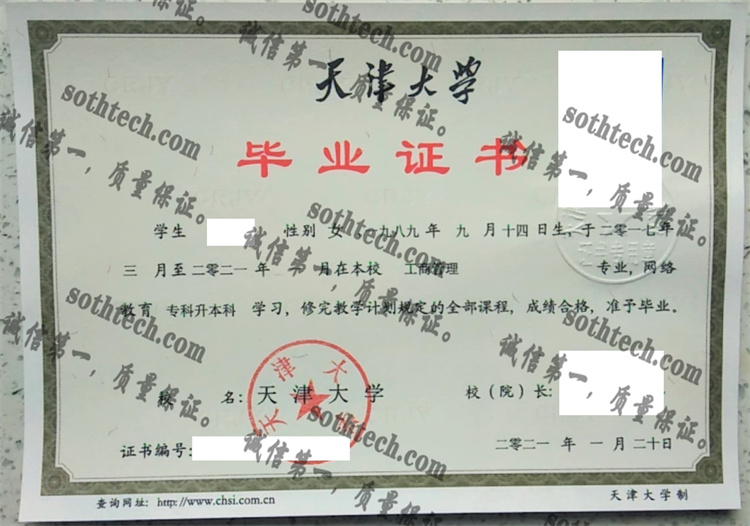 天津大学
毕业证书
学生 性别 女 一九八九年 九 月十四日生，于二〇一七年
三 月至二〇二一年 月在本校 工商管理 专业，网络
教育 专科升本科 学习，修完教学计划规定的全部课程，成绩合格，准予毕业。
校 名：天津大学 校（院）长：
天津大
证书编号：
二〇二一 年 一 月二十日
查询网址：http://www.chsi.com.cn 天津大学制
sothtech.com
诚信第一，质量保证。
sothtech.com
诚信第一，质量保证。
sothtech.com
诚信第一，质量保证。
sothtech.com
诚信第一，质量保证。
sothtech.com
诚信第一，质量保证。
sothtech.com
诚信第一，质量保证。
sothtech.com
诚信第一，质量保证。
sothtech.com
诚信第一，质量保证。